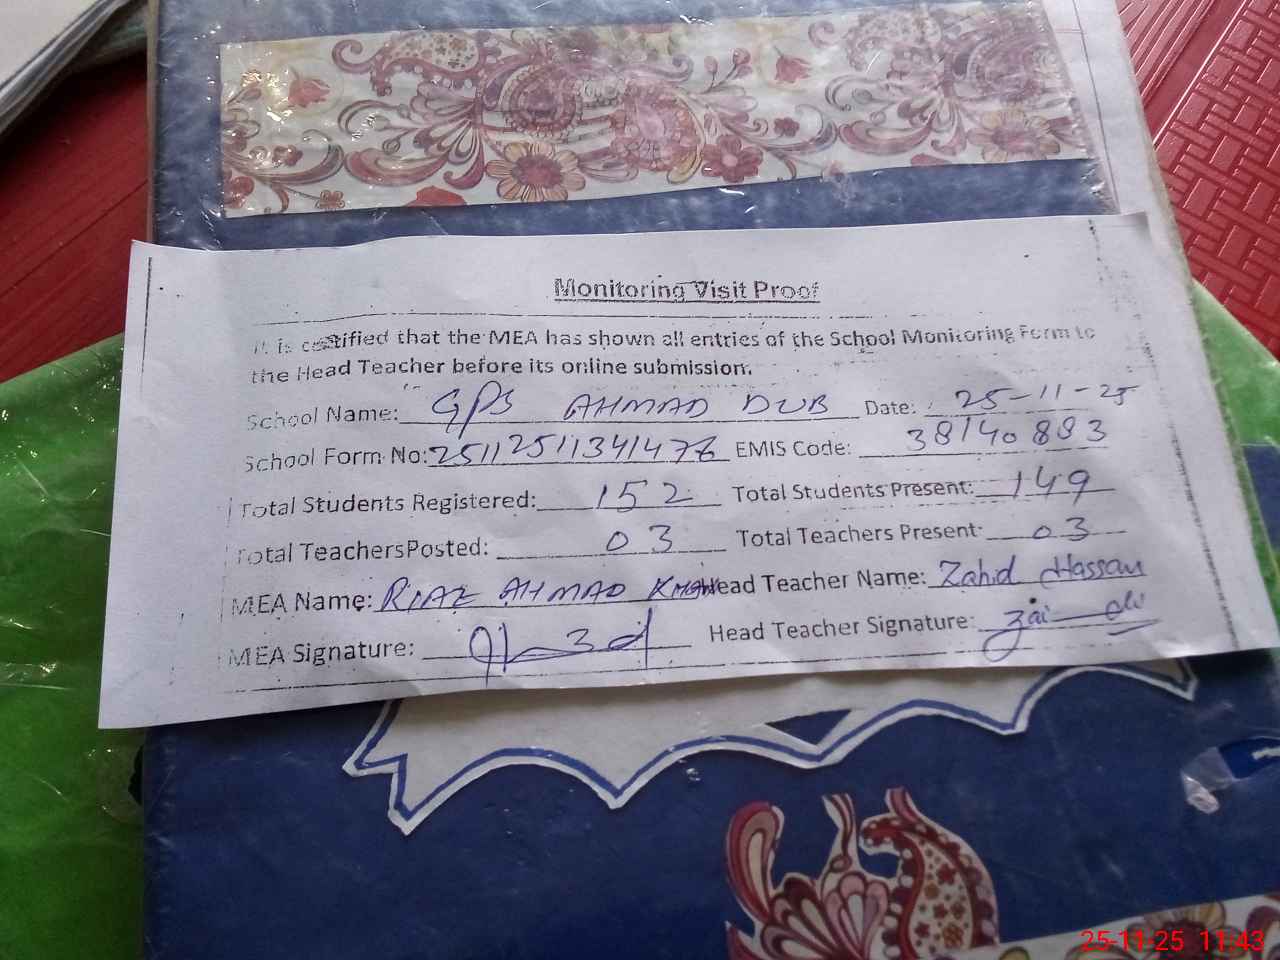 Monitoring Visit Proof
It is certified that the MEA has shown all entries of the School Monitoring Form to
the Head Teacher before its online submission.
School Name: GPS AHMAD DUB Date: 25-11-25
School Form No: 25112511341476 EMIS Code: 38140883
Total Students Registered: 152 Total Students Present: 149
Total TeachersPosted: 03 Total Teachers Present: 03
MEA Name: RIAZ AHMAD KHAN Head Teacher Name: Zahid Hassan
MEA Signature: Head Teacher Signature:
25-11-25 11:43